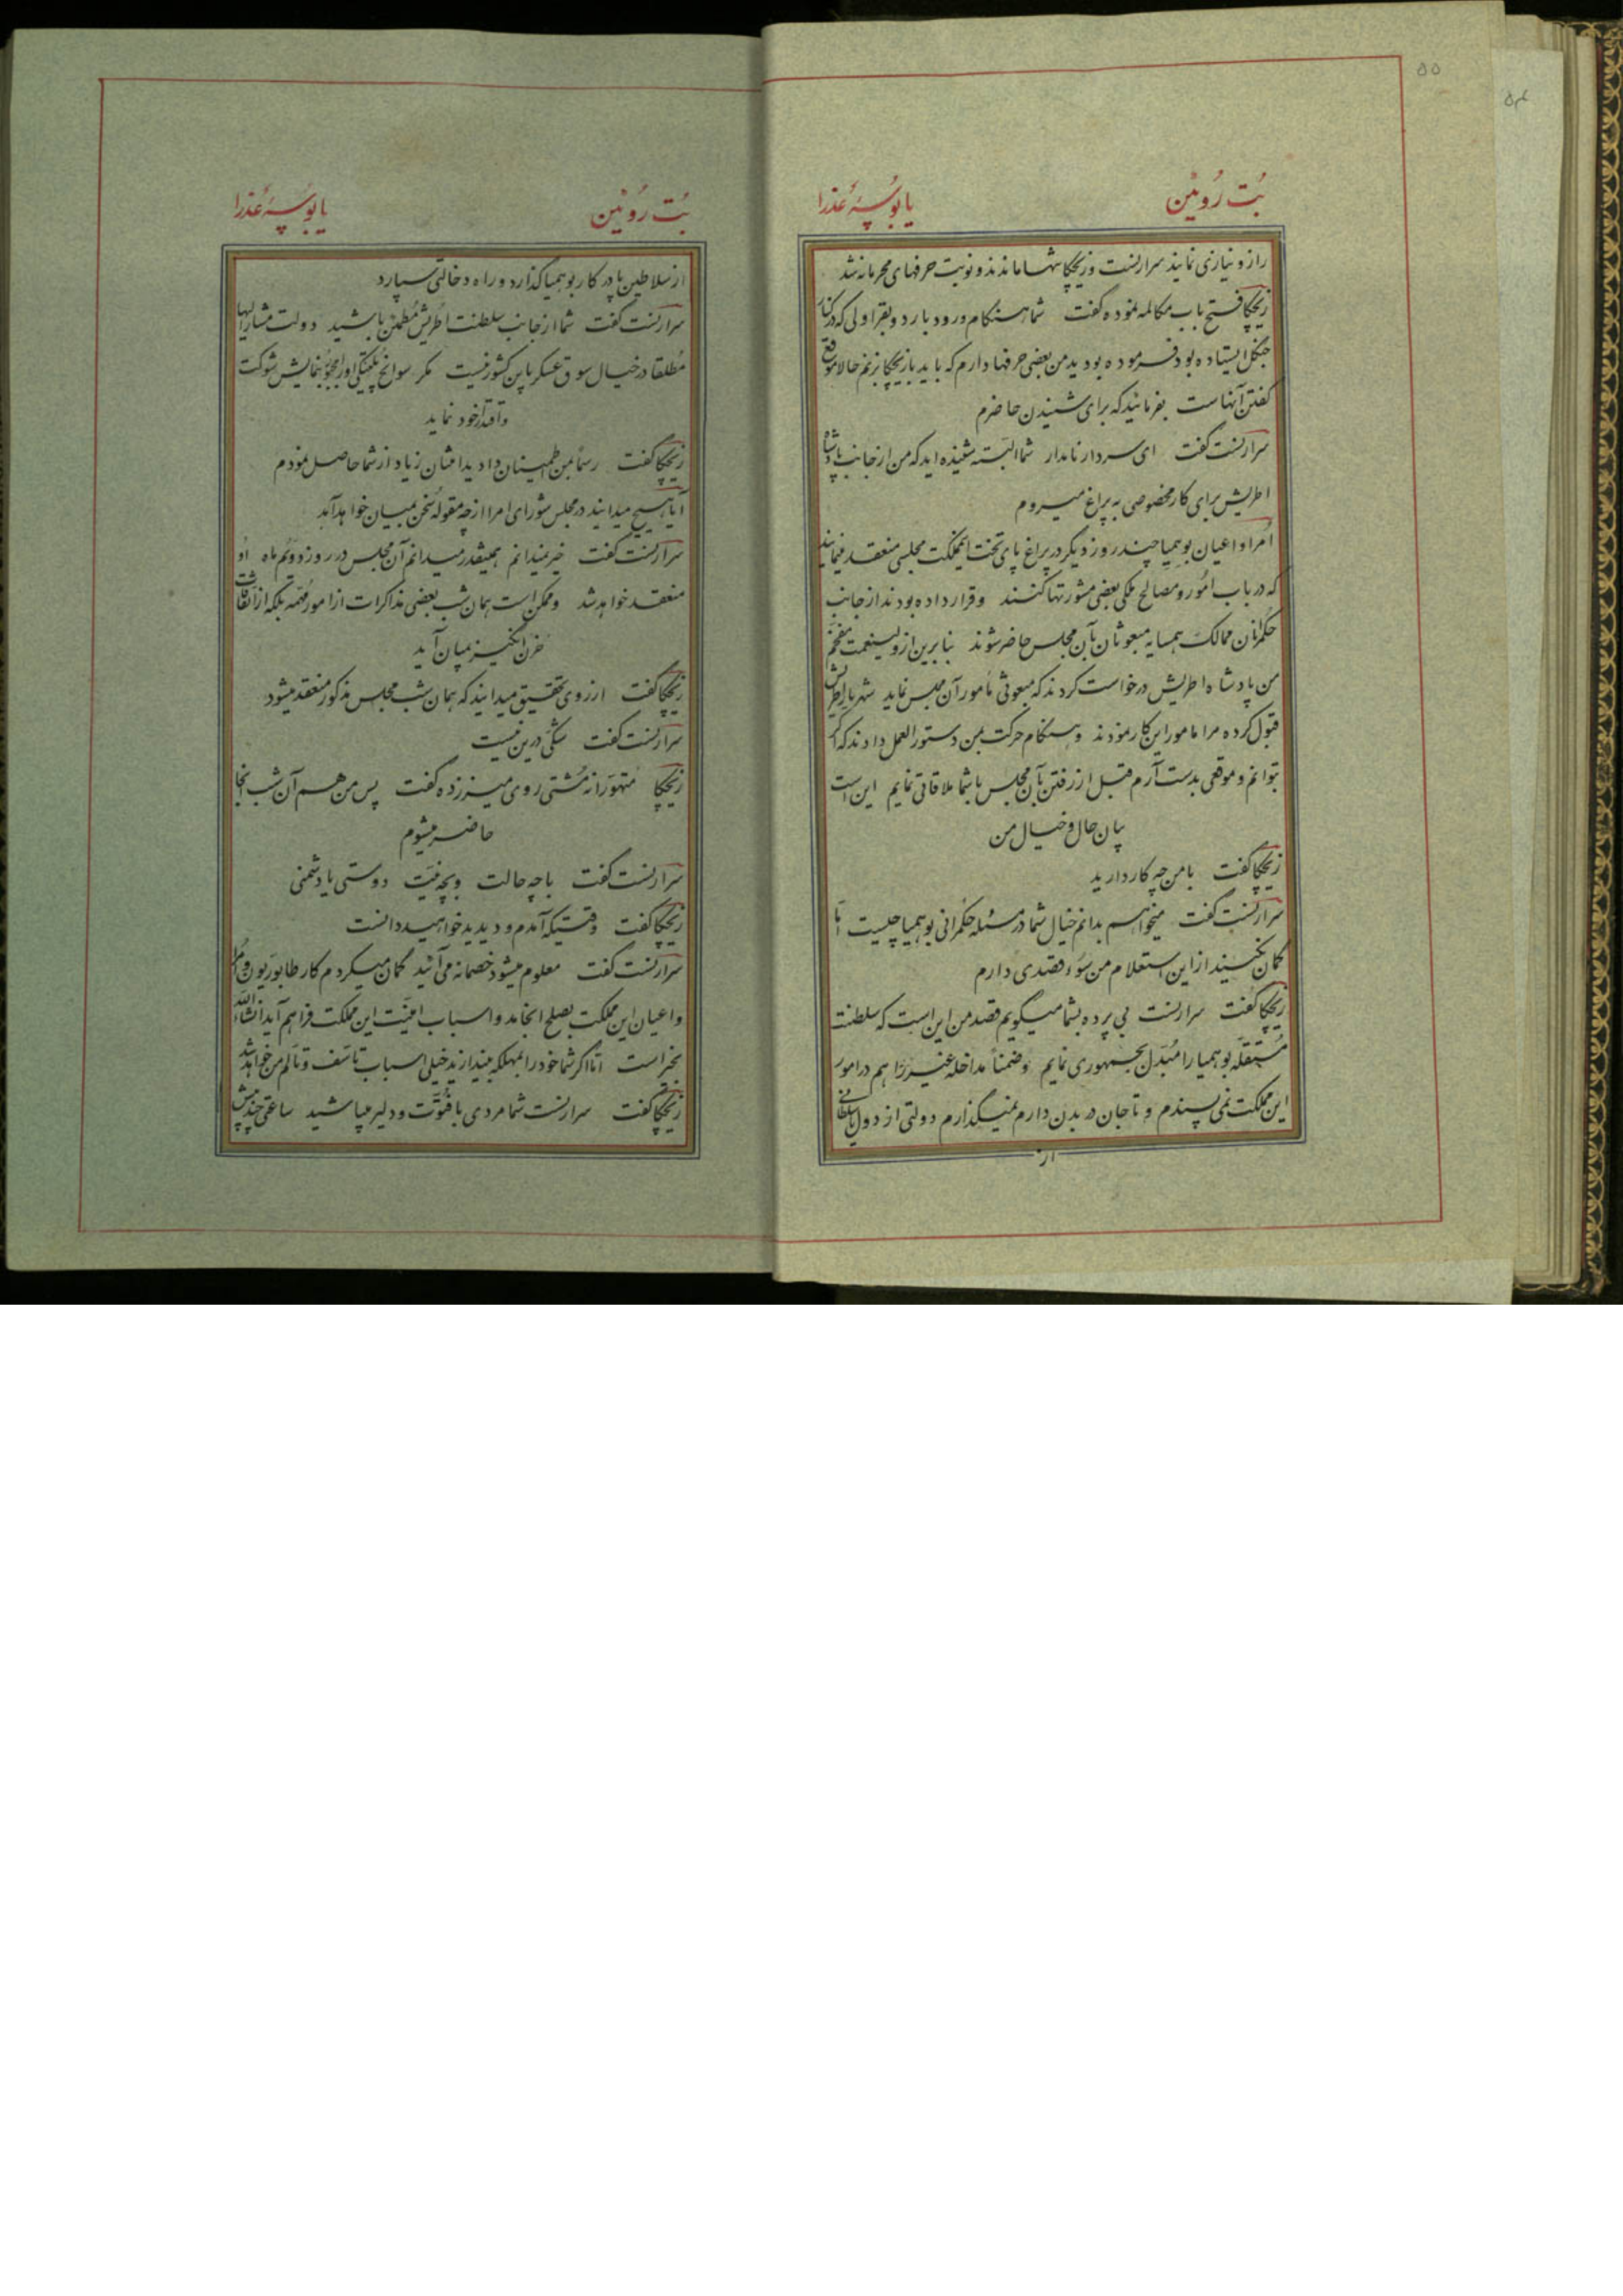 ۵۵
۵۴
بُت رُوئین
یا بُوسِهٔ عُذرا
راز و نیازی نمایند سرارنست و زیچکا تنها ماندند و نوبت حرفهای محرمانه شد
زیچکا فتح باب مکالمه نموده گفت شما هنگام ورود بارد و بقراولی که در کنار
جنگل ایستاده بود فرموده بودید من بعضی حرفها دارم که باید با زیچکا بزنم حالا موقع
گفتن آنهاست بفرمائید که برای شنیدن حاضرم
سرارنست گفت ای سردار نامدار شما البته شنیده اید که من از جانب پادشاه
اطریش برای کار مخصوصی به پراغ میروم
اُمرا و اعیان بوهمیا چند روز دیگر در پراغ پای تخت اینمملکت مجلسی منعقد مینمایند
که در باب امُور و مصالح ملکی بعضی مشورتها کنند و قرار داده بودند از جانب
حکمرانان ممالک همسایه مبعوثان بآن مجلس حاضر شوند بنابرین از ولینعمت مفخّم
من پادشاه اطریش درخواست کردند که مبعوثی مأمور آن مجلس نماید شهریار اطریش
قبول کرده مرا مامور این کار نمودند و هنگام حرکت بمن دستورالعمل دادند که اگر
بتوانم و موقعی بدست آرم قبل از رفتن بآن مجلس با شما ملاقاتی نمایم این است
بیان حال و خیال من
زیچکا گفت با من چه کار دارید
سرارنست گفت میخواهم بدانم خیال شما در مسئله حکمرانی بوهمیا چیست امّا
گمان نکنید از این استعلام من سوء قصدی دارم
زیچکا گفت سرارنست بی پرده بشما میگویم قصد من این است که سلطنت
مستقلّه بوهمیا را مُبَدّل بجمهوری نمایم و ضمناً مداخله غیر را هم در امور
این مملکت نمی پسندم و تا جان در بدن دارم نمیگذارم دولتی از دول یا سلطانی
از
بُت رُوئین
یا بُوسِهٔ عُذرا
از سلاطین پا در کار بوهمیا گذارد و راه دخالتی سپارد
سرارنست گفت شما از جانب سلطنت اطریش مُطمئن باشید دولت مشارالیها
مُطلقا در خیال سوق عسکر باین کشور نیست مگر سوانح پلتیکی او را مجبور بنمایش شوکت
و اقتدار خود نماید
زیچکا گفت رسماً بمن اطمینان دادید امتنان زیاد از شما حاصل نمودم
آیا هیچ میدانید در مجلس شورای امرا از چه مقوله سخن بمیان خواهد آمد
سرارنست گفت خیر نمیدانم همینقدر میدانم آن مجلس در روز دوّم ماه اُو
منعقد خواهد شد و ممکن است همان شب بعضی مذاکرات از امور مُهمّه بلکه از اتفاقات
حُزن انگیز بمیان آید
زیچکا گفت از روی تحقیق میدانید که همان شب مجلس مذکور منعقد میشود
سرارنست گفت شکّی درین نیست
زیچکا مُتهوّرانه مُشتی روی میز زده گفت پس من هم آن شب آنجا
حاضر میشوم
سرارنست گفت با چه حالت و بچه نیّت دوستی یا دشمنی
زیچکا گفت وقتیکه آمدم و دیدید خواهید دانست
سرارنست گفت معلوم میشود خصمانه می آئید گمان میکردم کار طابوریون و اُمرا
و اعیان این مملکت بصلح انجامد و اسباب امنیّت این مملکت فراهم آید انشاءالله
بخیر است امّا اگر شما خود را بمهلکه بیندازید خیلی اسباب تأسّف و تألم من خواهد شد
زیچکا گفت سرارنست شما مردی با فُتوّت و دلیر میباشید ساعتی چند پیش